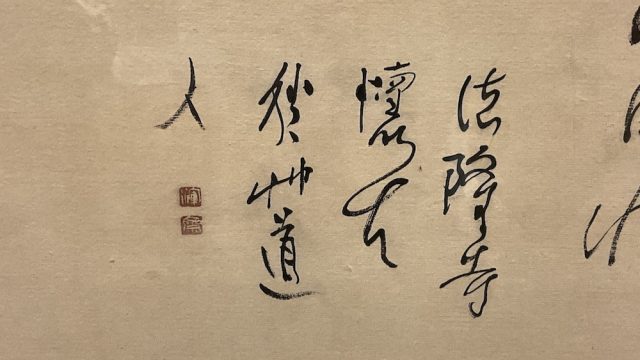 法隆寺
懷古
秋艸道
人